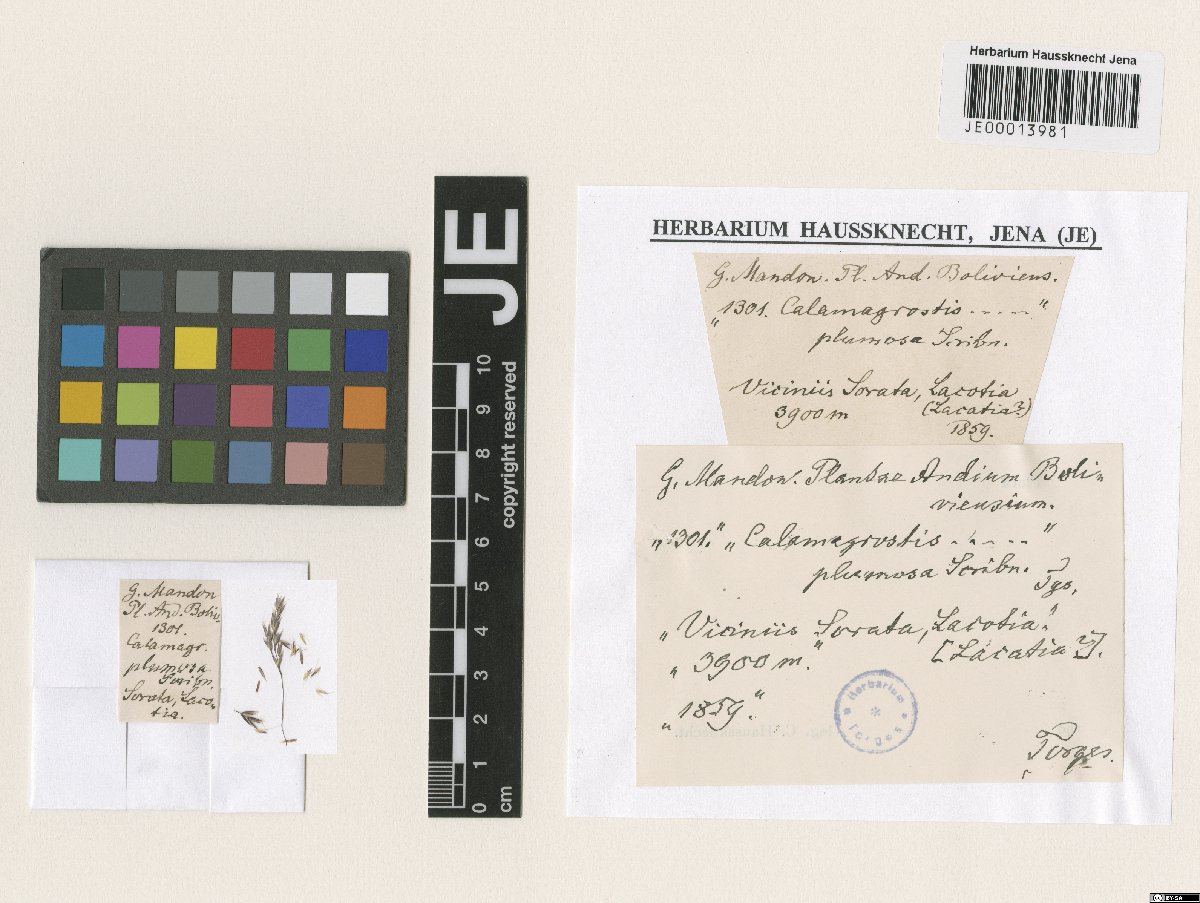 Herbarium Haussknecht Jena
JE00013981
HERBARIUM HAUSSKNECHT, JENA (JE)
G. Mandon. Pl. And. Boliviens.
"1301. Calamagrostis ....."
plumosa Scribn.
Viciniis Sorata, Lacotia
3900 m (Lacatia?)
1859.
G. Mandon. Plantae Andium Boli-
viensium.
„1301." „Calamagrostis ....."
plumosa Scribn.
Tgs.
„Viciniis Sorata, Lacotia."
„3900 m." [Lacatia?].
„1859."
Herbarium
Torges
Torges.
G. Mandon
Pl. And. Boliv.
1301.
Calamagr.
plumosa
Scribn.
Sorata, Laco-
tia.
JE
10
9
8
7
6
5
4
3
2
1
0
cm
copyright reserved
BY-SA